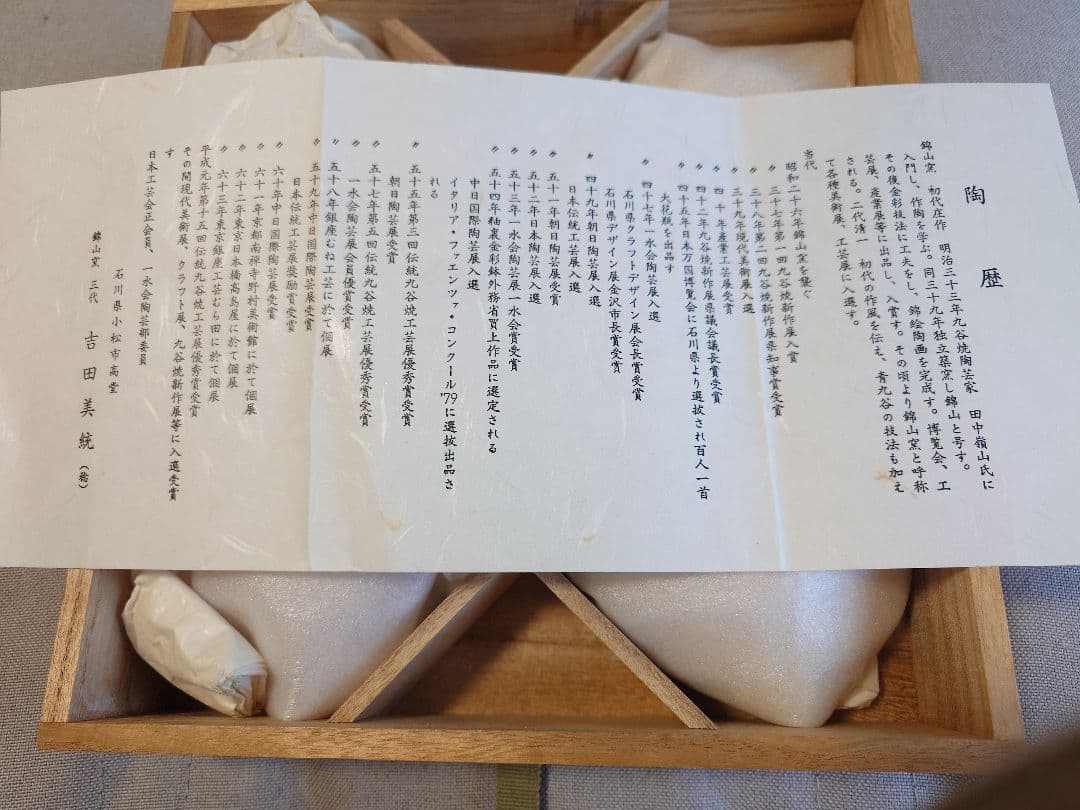 陶歴
錦山窯　初代庄作　明治三十三年九谷焼陶芸家　田中嶺山氏に
入門し、作陶を学ぶ。同三十九年独立築窯し錦山と号す。
その後金彩技法に工夫をし、錦絵陶画を完成す。博覧会、工
芸展、産業展等に出品し、入賞す。その頃より錦山窯と呼称
される。二代清一　初代の作風を伝え、青九谷の技法も加え
て各種美術展、工芸展に入選す。
当代
昭和二十六年錦山窯を継ぐ
〃三十七年第一回九谷焼新作展入賞
〃三十八年第二回九谷焼新作展県知事賞受賞
〃三十九年現代美術展入選
〃四十年産業工芸展受賞
〃四十二年九谷焼新作展県議会議長賞受賞
〃四十五年日本万国博覧会に石川県より選抜され百人一首
大花瓶を出品す
〃四十七年一水会陶芸展入選
石川県クラフトデザイン展会長賞受賞
石川県デザイン展金沢市長賞受賞
〃四十九年朝日陶芸展入選
日本伝統工芸展入選
〃五十一年朝日陶芸展受賞
〃五十二年日本陶芸展入選
〃五十三年一水会陶芸展一水会賞受賞
〃五十四年釉裏金彩鉢外務省買上作品に選定される
中日国際陶芸展入選
イタリア・ファエンツァ・コンクール'79に選抜出品さ
れる
〃五十五年第三回伝統九谷焼工芸展優秀賞受賞
朝日陶芸展受賞
〃五十七年第五回伝統九谷焼工芸展優秀賞受賞
一水会陶芸展会員優賞受賞
〃五十八年銀座むね工芸に於て個展
〃五十九年中日国際陶芸展受賞
日本伝統工芸展奨励賞受賞
〃六十年中日国際陶芸展受賞
〃六十一年京都南禅寺野村美術館に於て個展
〃六十二年東京日本橋高島屋に於て個展
〃六十三年東京銀座工芸むら田に於て個展
平成元年第十五回伝統九谷焼工芸展優秀賞受賞
その間現代美術展、クラフト展、九谷焼新作展等に入選受賞
す
日本工芸会正会員、一水会陶芸部委員
石川県小松市高堂
錦山窯　三代　吉田美統（稔）